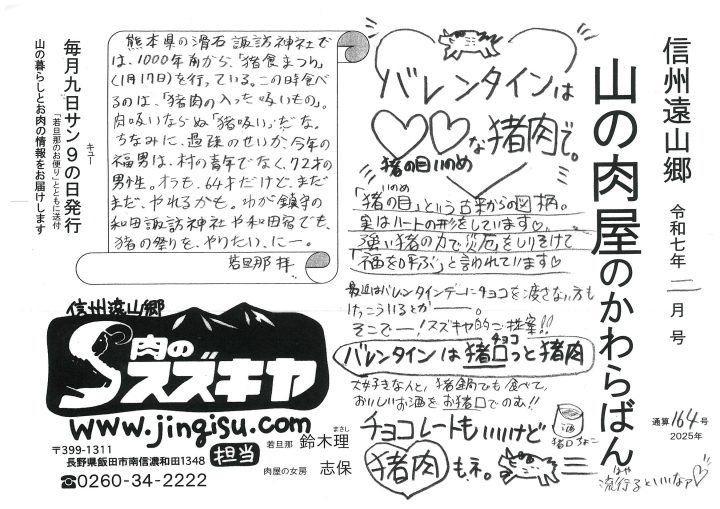 信州遠山郷
令和七年 二月号
山の肉屋のかわらばん
通算164号
2025年
バレンタインは
♡♡な猪肉で。
猪の目 いのめ
いのめ
「猪の目」という古来からの図柄。
実はハートの形をしています♡。
強い猪の力で災厄をしりぞけて
「福を呼ぶ」と言われています♡
最近はバレンタインデーにチョコを渡さない方も
けっこういるとか――。
そこでー!スズキヤ的ご提案!!
チョコ
バレンタインは猪口っと猪肉
大好きな人と、猪鍋でも食べて、
おいしいお酒をお猪口でのむ!!
酒
猪口ちょこ
チョコレートもいいけど
猪肉もネ。
はや
流行るといいなァ♡
熊本県の滑石諏訪神社で
は、1000年前から、「猪食まつり」
(1月17日)を行っている。この時食べ
るのは、「猪肉の入った吸いもの」。
肉吸いならぬ「猪吸い」だな。
ちなみに、過疎のせいか、今年の
福男は、村の青年でなく、72才の
男性。オラも、64才だけど、まだ
まだ、やれるかも。わが鎮守の
和田諏訪神社や和田宿でも、
猪の祭りを、やりたいに―。
若旦那 拝
毎月九日サンキュー9の日発行
「若旦那のお便り」とともに送付
山の暮らしとお肉の情報をお届けします
信州遠山郷
肉の
スズキヤ
www.jingisu.com
〒399-1311
長野県飯田市南信濃和田1348
☎0260-34-2222
担当
まさし
若旦那 鈴木理
肉屋の女房 志保